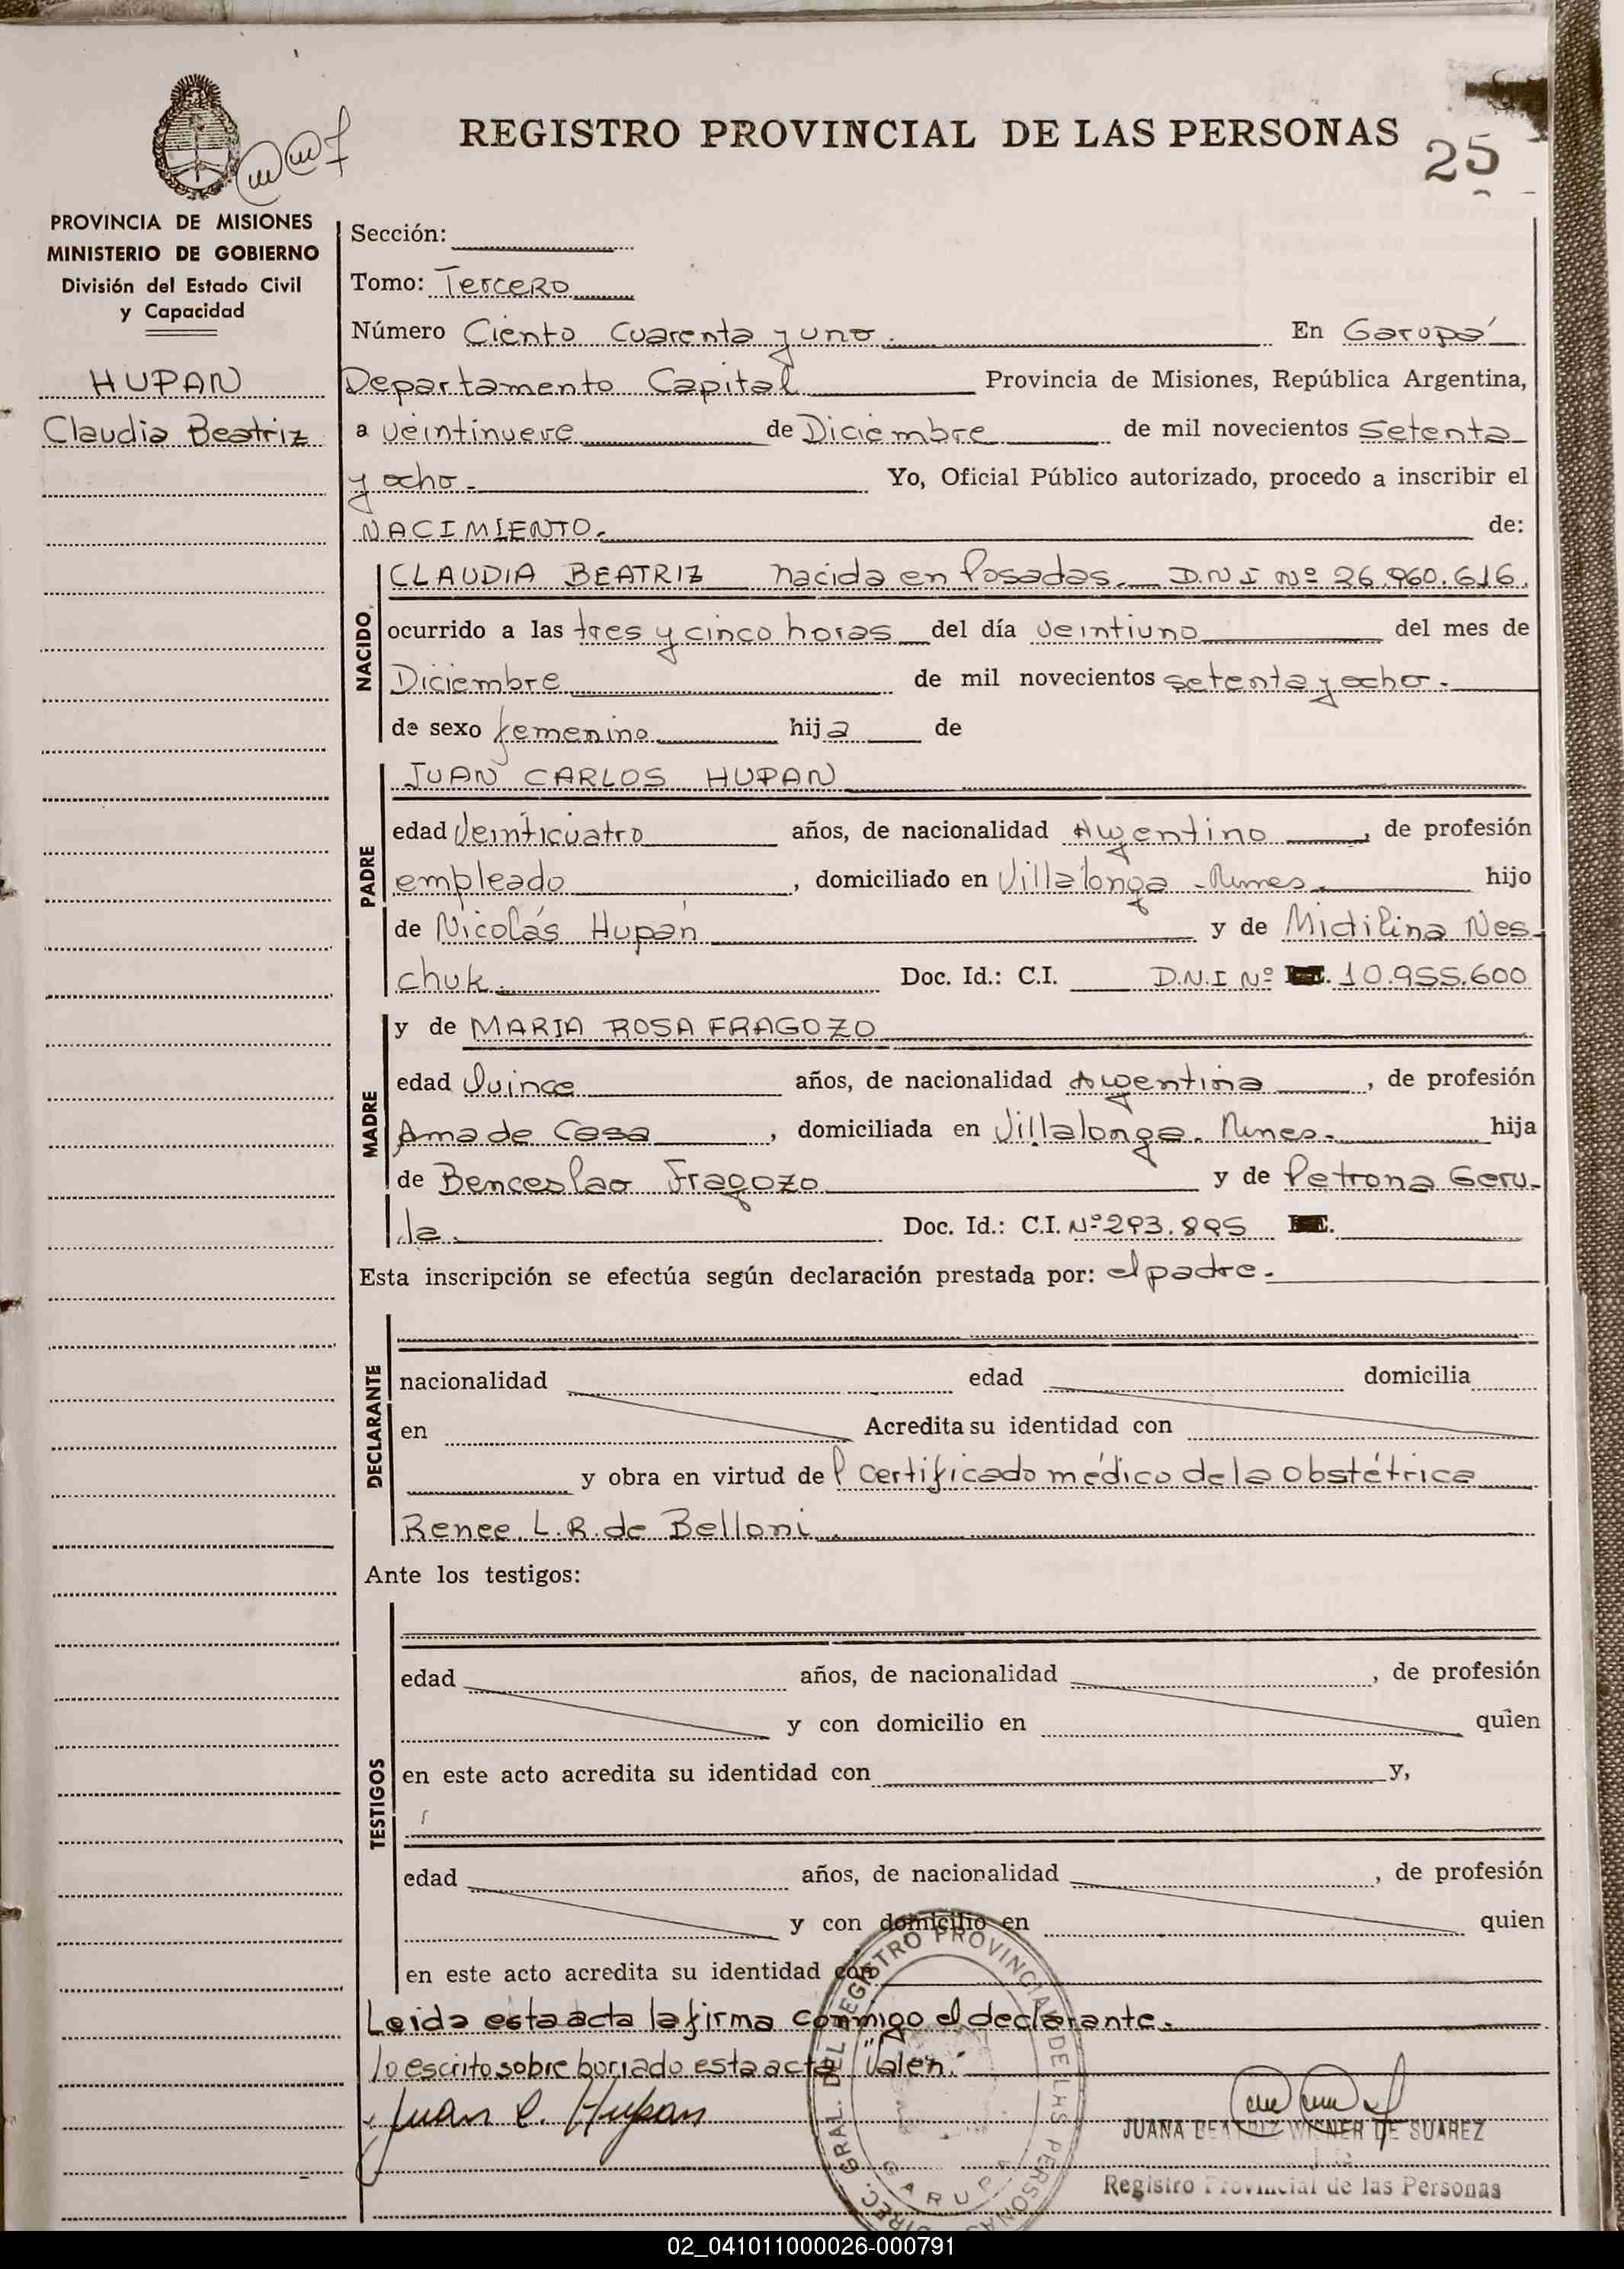 REGISTRO PROVINCIAL DE LAS PERSONAS
25
PROVINCIA DE MISIONES
MINISTERIO DE GOBIERNO
División del Estado Civil
y Capacidad
HUPAN
Claudia Beatriz
Sección:
Tomo: Tercero
Número Ciento Cuarenta y uno. En Garupá
Departamento Capital Provincia de Misiones, República Argentina,
a veintinueve de Diciembre de mil novecientos setenta
y ocho. Yo, Oficial Público autorizado, procedo a inscribir el
NACIMIENTO. de:
NACIDO
CLAUDIA BEATRIZ nacida en Posadas. D.N.I Nº 26.960.616.
ocurrido a las tres y cinco horas del día veintiuno del mes de
Diciembre de mil novecientos setenta y ocho.
de sexo femenino hija de
PADRE
JUAN CARLOS HUPAN
edad Veinticuatro años, de nacionalidad Argentino, de profesión
empleado, domiciliado en Villalonga - hijo
de Nicolás Hupán y de Mictilina Nes-
chuk. Doc. Id.: C.I. D.N.I Nº 10.955.600
MADRE
y de MARIA ROSA FRAGOZO
edad Quince años, de nacionalidad Argentina, de profesión
Ama de Casa, domiciliada en Villalonga. hija
de Benceslao Fragozo y de Petrona Geru-
la. Doc. Id.: C.I. Nº 293.895
Esta inscripción se efectúa según declaración prestada por: el padre.
DECLARANTE
nacionalidad edad domicilia
en Acredita su identidad con
y obra en virtud del certificado médico de la obstétrica
Renee L.R. de Belloni
Ante los testigos:
TESTIGOS
edad años, de nacionalidad , de profesión
y con domicilio en quien
en este acto acredita su identidad con y,
edad años, de nacionalidad , de profesión
y con domicilio en quien
en este acto acredita su identidad con
Leida esta acta la firma conmigo el declarante.
lo escrito sobre borrado esta acta "Valen."
Juan C. Hupan
DIREC. GRAL. DEL REGISTRO PROVINCIAL DE LAS PERSONAS
GARUPA
JUANA BEATRIZ WISNER DE SUAREZ
Registro Provincial de las Personas
02_041011000026-000791